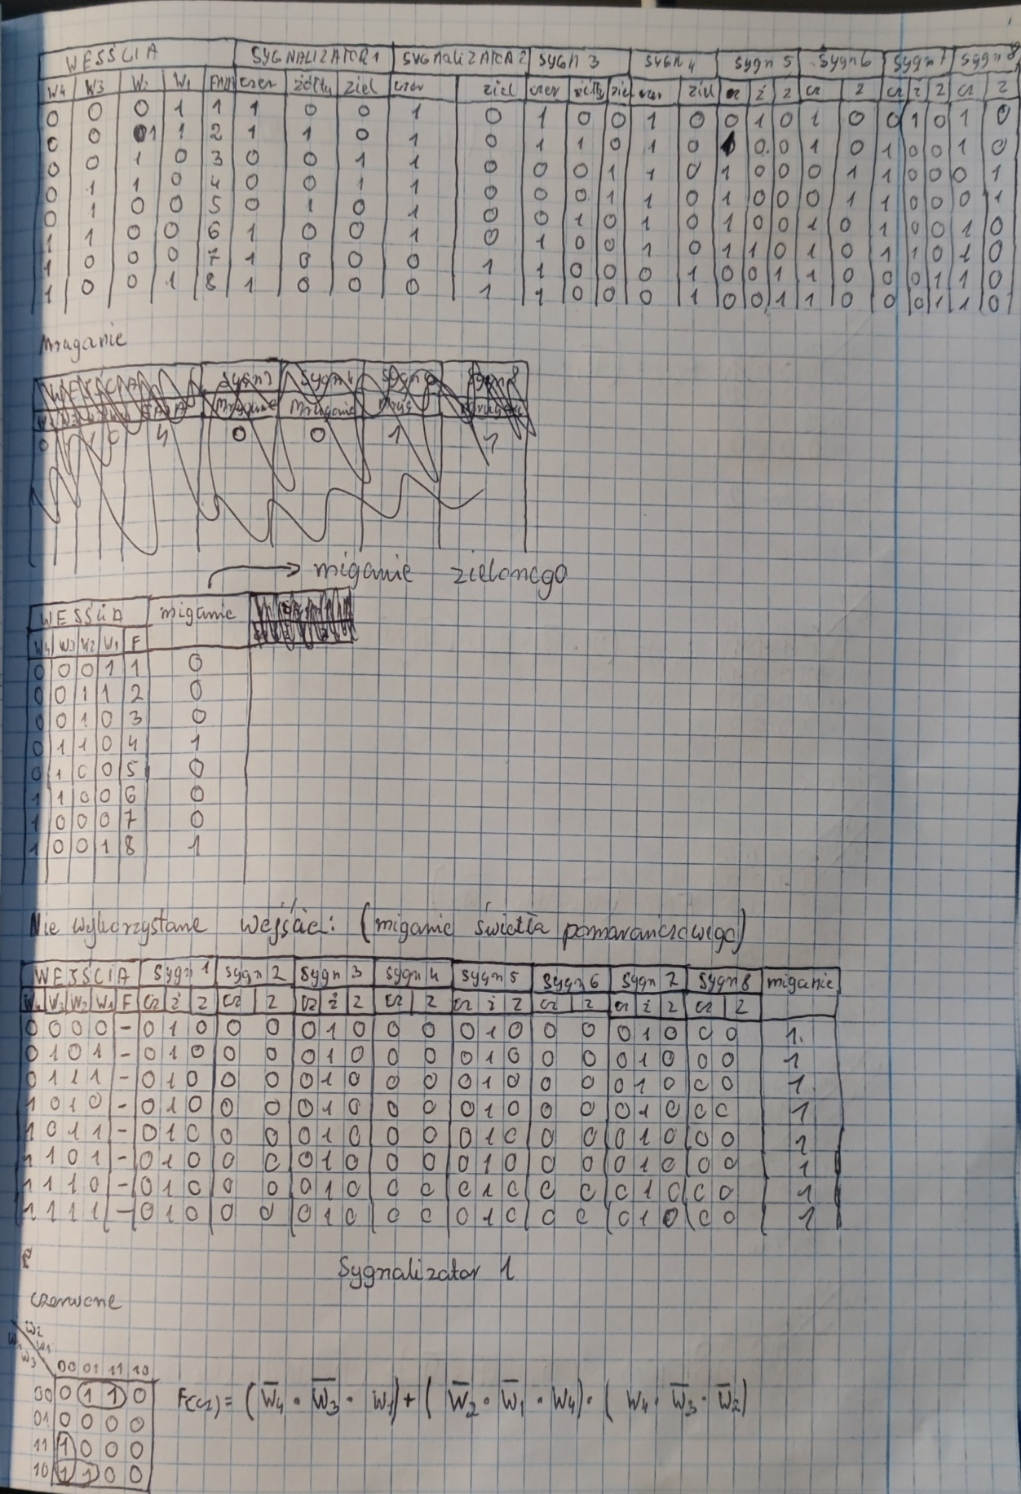 WEJŚCIA SYGNALIZATOR 1 SYGNALIZATOR 2 SYGN 3 SYGN 4 SYGN 5 SYGN 6 SYGN 7 SYGN 8
W4 W3 W2 W1 FAZA czer żółty ziel czer ziel czer żółty ziel czer ziel cz ż z cz z cz ż z cz z
0 0 0 1 1 1 0 0 1 0 1 0 0 1 0 0 1 0 1 0 0 1 0 1 0
0 0 1 1 2 1 1 0 1 0 1 1 0 1 0 1 0 0 1 0 1 0 0 1 0
0 0 1 0 3 0 0 1 1 0 0 0 1 1 0 1 0 0 0 1 1 0 0 0 1
0 1 1 0 4 0 0 1 1 0 0 0 1 1 0 1 0 0 0 1 1 0 0 0 1
0 1 0 0 5 0 1 0 1 0 0 1 0 1 0 1 0 0 1 0 1 0 0 1 0
1 1 0 0 6 1 0 0 1 0 1 0 0 1 0 1 1 0 1 0 1 1 0 1 0
1 0 0 0 7 1 0 0 0 1 1 0 0 0 1 0 0 1 1 0 0 0 1 1 0
1 0 0 1 8 1 0 0 0 1 1 0 0 0 1 0 0 1 1 0 0 0 1 1 0
Mruganie
miganie zielonego
WEJŚCIA miganie
W4 W3 W2 W1 F
0 0 0 1 1 0
0 0 1 1 2 0
0 0 1 0 3 0
0 1 1 0 4 1
0 1 0 0 5 0
1 1 0 0 6 0
1 0 0 0 7 0
1 0 0 1 8 1
Nie wykorzystane wejścia: (miganie światła pomarańczowego)
WEJŚCIA Sygn 1 Sygn 2 Sygn 3 Sygn 4 Sygn 5 Sygn 6 Sygn 7 Sygn 8 miganie
W4 W3 W2 W1 F cz ż z cz z cz ż z cz z cz ż z cz z cz ż z cz z
0 0 0 0 - 0 1 0 0 0 0 1 0 0 0 0 1 0 0 0 0 1 0 0 0 1
0 1 0 1 - 0 1 0 0 0 0 1 0 0 0 0 1 0 0 0 0 1 0 0 0 1
0 1 1 1 - 0 1 0 0 0 0 1 0 0 0 0 1 0 0 0 0 1 0 0 0 1
1 0 1 0 - 0 1 0 0 0 0 1 0 0 0 0 1 0 0 0 0 1 0 0 0 1
1 0 1 1 - 0 1 0 0 0 0 1 0 0 0 0 1 0 0 0 0 1 0 0 0 1
1 1 0 1 - 0 1 0 0 0 0 1 0 0 0 0 1 0 0 0 0 1 0 0 0 1
1 1 1 0 - 0 1 0 0 0 0 1 0 0 0 0 1 0 0 0 0 1 0 0 0 1
1 1 1 1 - 0 1 0 0 0 0 1 0 0 0 0 1 0 0 0 0 1 0 0 0 1
Sygnalizator 1
czerwone
W2
W1
W3
00 01 11 10
00 0 1 1 0
01 0 0 0 0
11 1 0 0 0
10 1 1 0 0
F(cz) = (W̅4 · W̅3 · W1) + (W̅2 · W̅1 · W4) · (W4 · W̅3 · W̅2)